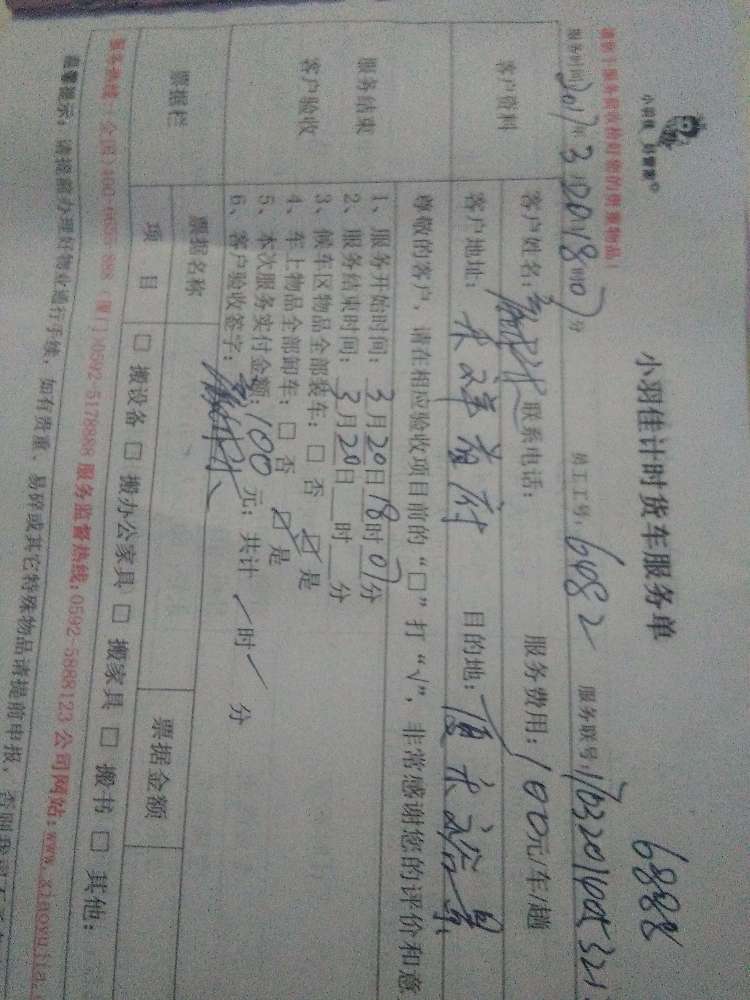 小羽佳 好管家
小羽佳计时货车服务单
6888
请到十服务前收拾好您的贵重物品!
服务时间:2017年3月20日18时07分 员工工号:6482 服务联号:
客户资料
客户姓名: 联系电话: 服务费用:100元/车/趟
客户地址: 目的地:
服务结束
客户验收
尊敬的客户,请在相应验收项目前的“□”打“√”,非常感谢您的评价和意
1、服务开始时间:3月20日18时07分
2、服务结束时间:3月20日 时 分
3、候车区物品全部装车:□ 否 ☑ 是
4、车上物品全部卸车:□ 否 ☑ 是
5、本次服务实付金额:100元;共计 / 时 / 分
6、客户验收签字:
票据栏
票据名称 票据金额
项 目 □ 搬设备 □ 搬办公家具 □ 搬家具 □ 搬书 □ 其他:
服务热线:(全国)400-6655-888 (厦门)0592-5178888 服务监督热线:0592-5888123 公司网站:www.xiaoyujia.
温馨提示:请提前办理好物业通行手续,如有贵重、易碎或其它特殊物品请提前申报,否则我司不